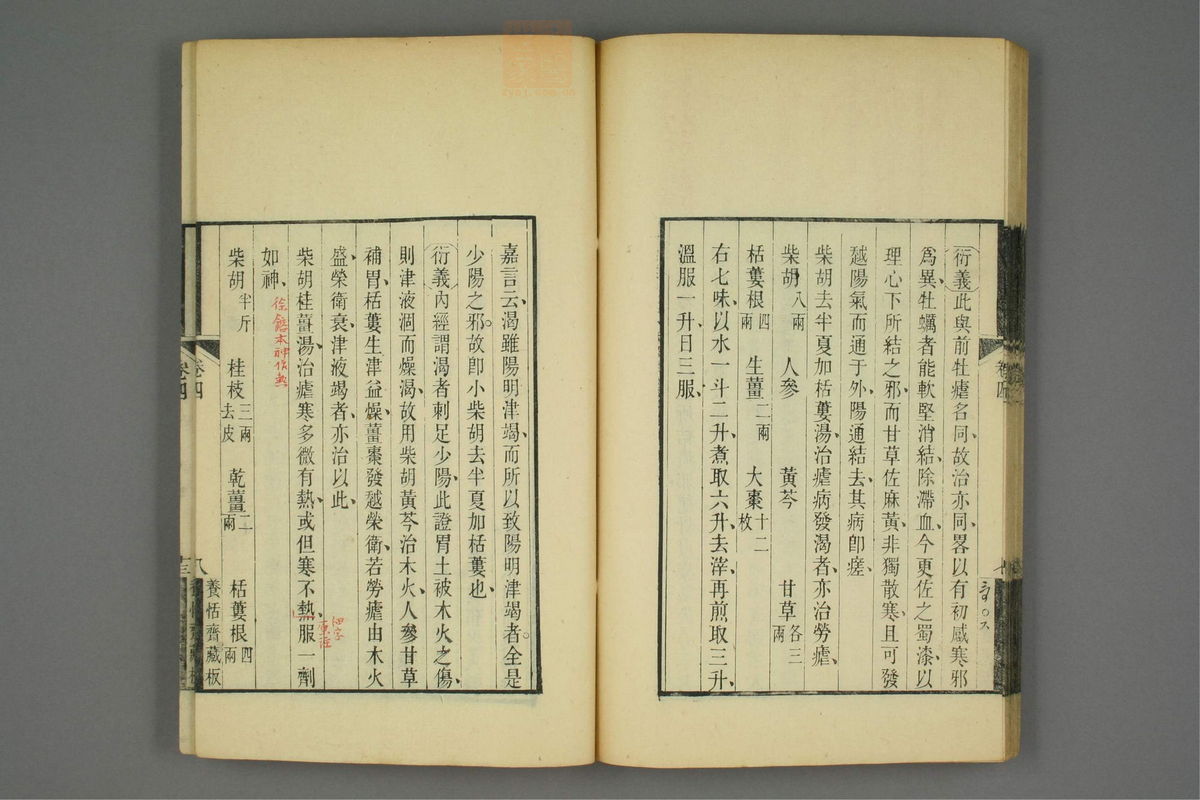 衍義此與前牡瘧名同故治亦同畧以有初感寒邪
爲異牡蠣者能軟堅消結除滯血今更佐之蜀漆以
理心下所結之邪而甘草佐麻黃非獨散寒且可發
越陽氣而通于外陽通結去其病卽瘥
柴胡去半夏加栝蔞湯治瘧病發渴者亦治勞瘧
柴胡八兩 人參 黃芩 甘草各三兩
栝蔞根四兩 生薑二兩 大棗十二枚
右七味以水一斗二升煮取六升去滓再煎取三升
溫服一升日三服
卷四
嘉言云渴雖陽明津竭而所以致陽明津竭者全是
少陽之邪故卽小柴胡去半夏加栝蔞也
衍義內經謂渴者刺足少陽此證胃土被木火之傷
則津液涸而燥渴故用柴胡黃芩治木火人參甘草
補胃栝蔞生津益燥薑棗發越榮衛若勞瘧由木火
盛榮衛衰津液竭者亦治以此
柴胡桂薑湯治瘧寒多微有熱或但寒不熱服一劑
如神
徐鎔本神作效
四字原註
柴胡半斤 桂枝三兩去皮 乾薑二兩 栝蔞根四兩
卷四
八
養恬齋藏板
卷四
十三